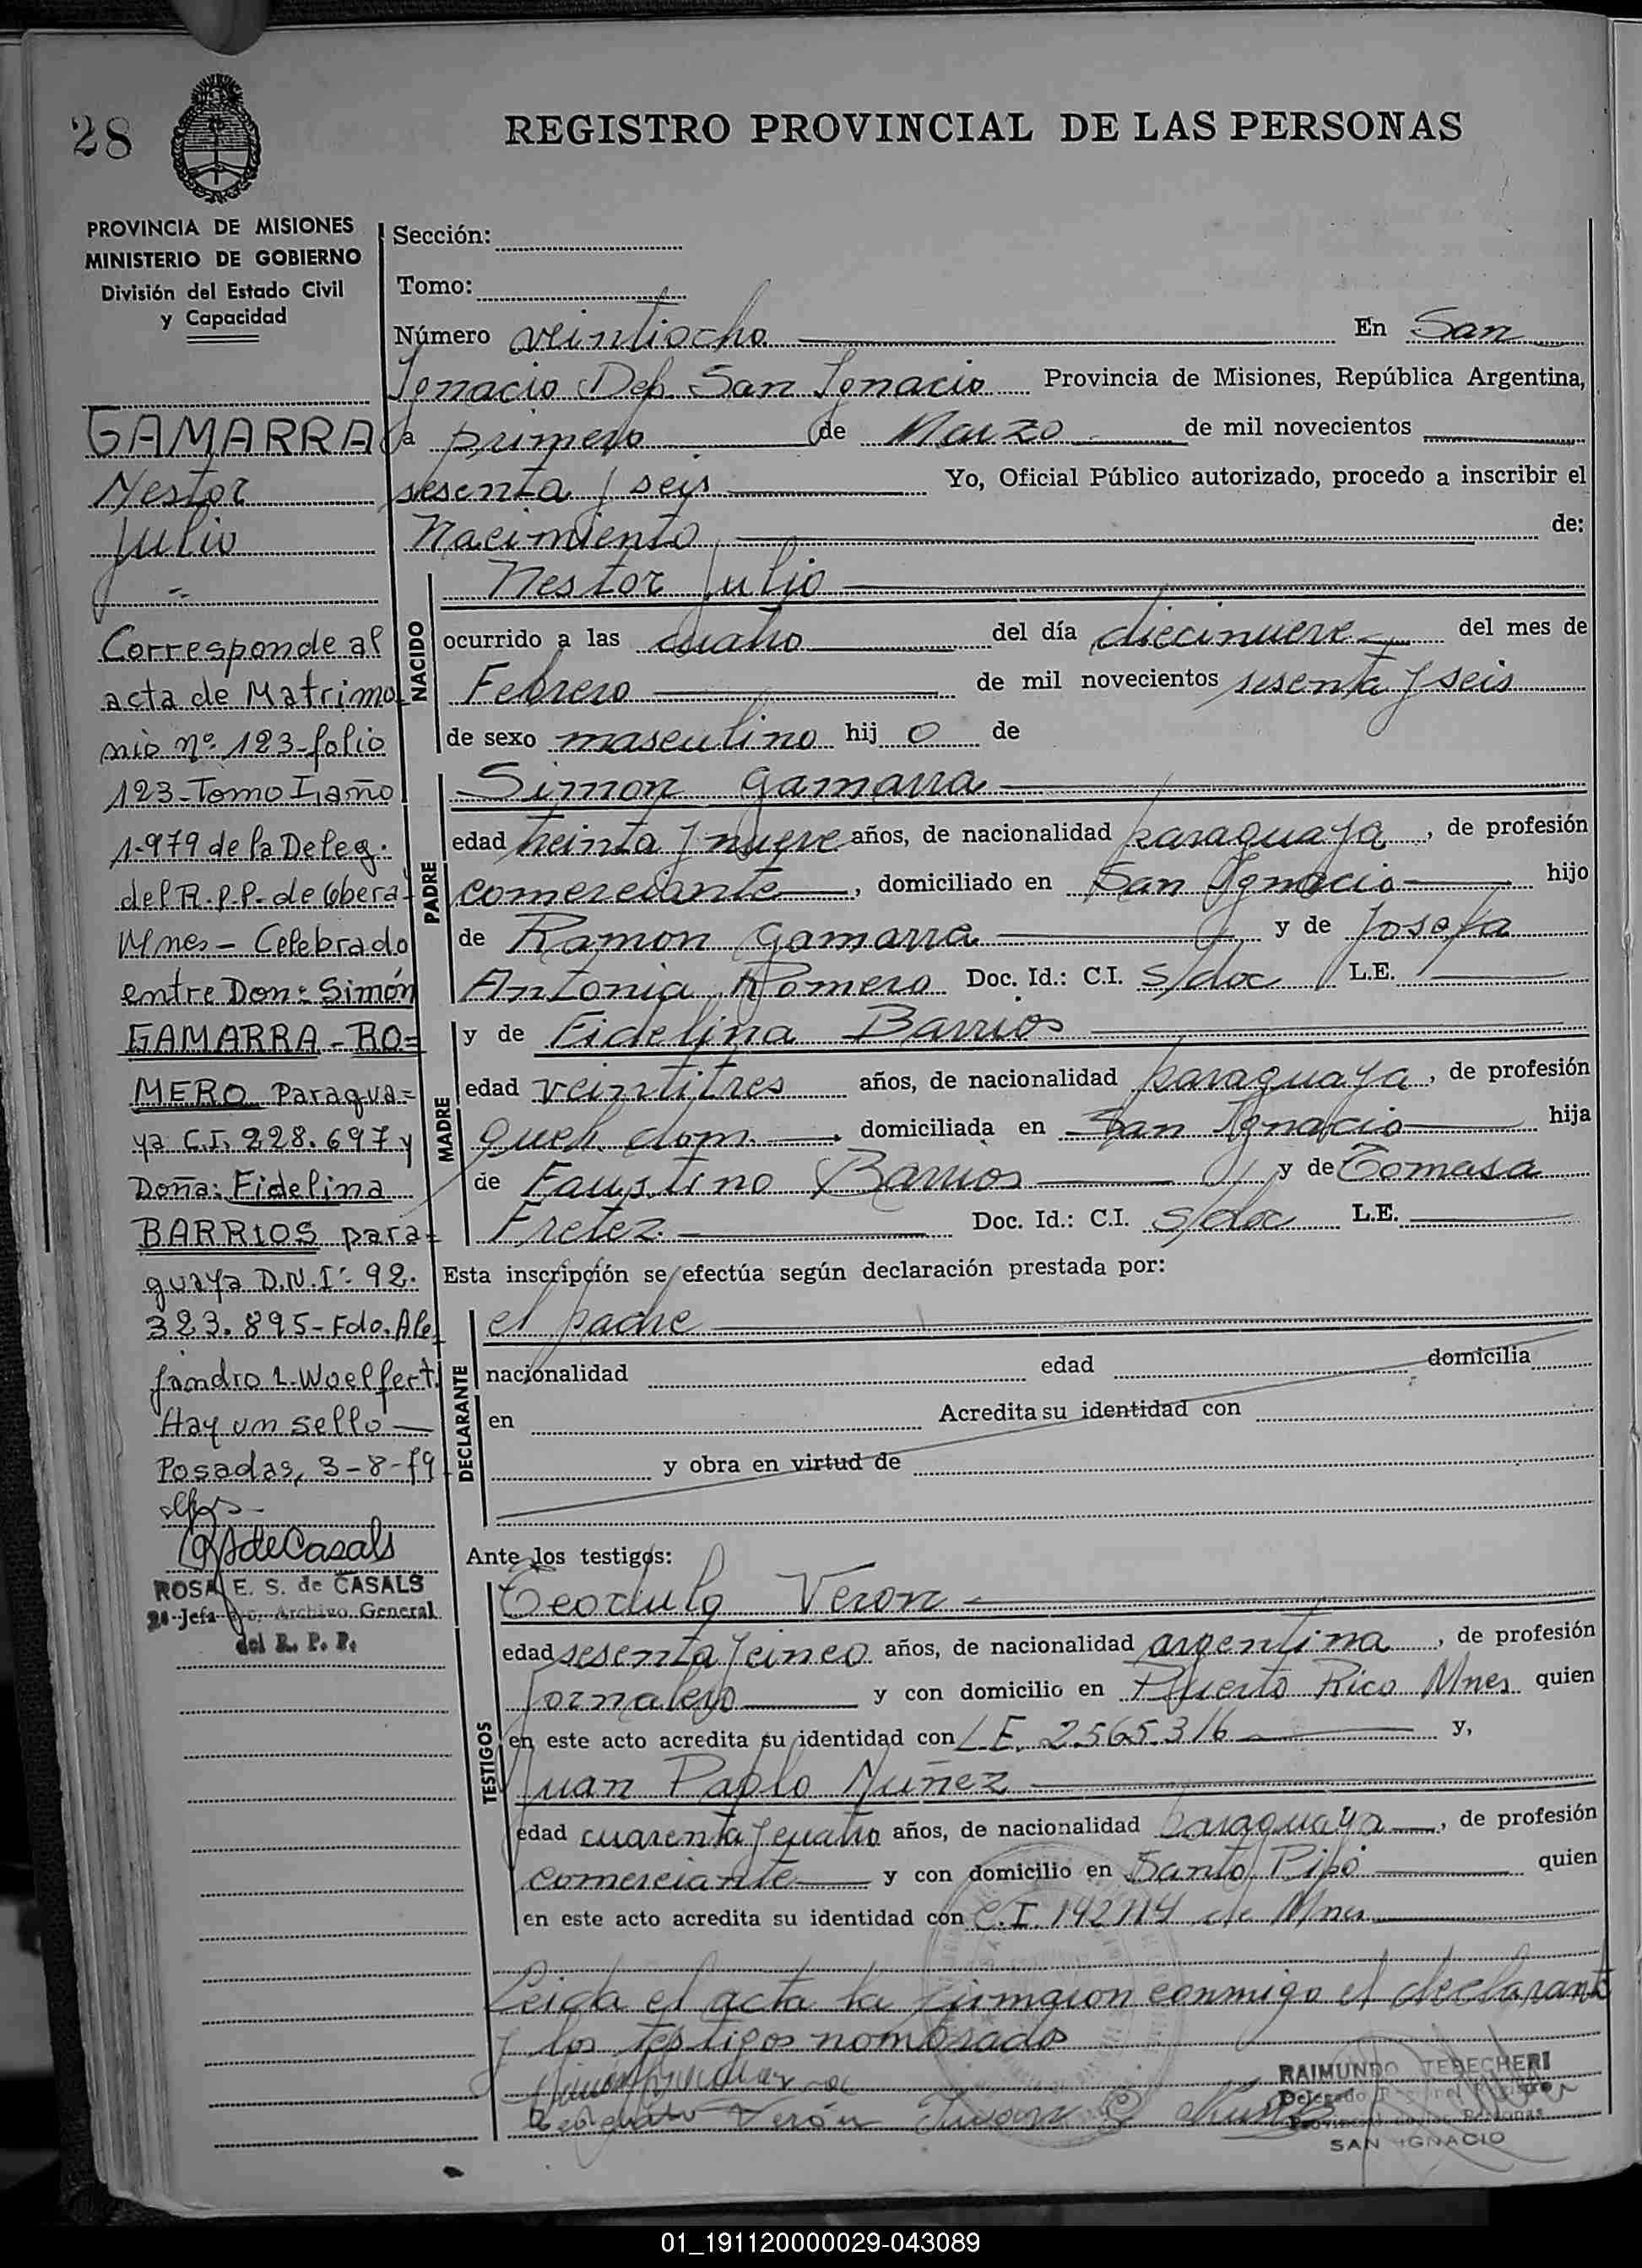 28
REGISTRO PROVINCIAL DE LAS PERSONAS
PROVINCIA DE MISIONES
MINISTERIO DE GOBIERNO
División del Estado Civil
y Capacidad
GAMARRA
Nestor
Julio
Corresponde al
acta de Matrimo
nio nº 123-folio
123-Tomo I, año
1.979 de la Deleg.
del R.P.P. de Oberá-
Mnes - Celebrado
entre Don: Simón
GAMARRA - RO=
MERO Paragua=
ya C.I. 228.697 y
Doña: Fidelina
BARRIOS para=
guaya D.N.I: 92.
323.895 - Fdo. Ale
jandro L. Woelfert.
Hay un sello
Posadas, 3-8-79
ROSA E. S. de CASALS
Archivo General
del R. P. P.
Sección:
Tomo:
Número veintiocho En San
Ignacio Dep. San Ignacio Provincia de Misiones, República Argentina,
a primero de Marzo de mil novecientos
sesenta y seis Yo, Oficial Público autorizado, procedo a inscribir el
Nacimiento de:
NACIDO
Nestor Julio
ocurrido a las cuatro del día diecinueve del mes de
Febrero de mil novecientos sesenta y seis
de sexo masculino hij o de
PADRE
Simon Gamarra
edad treinta y nueve años, de nacionalidad paraguaya, de profesión
comerciante, domiciliado en San Ignacio hijo
de Ramon Gamarra y de Josefa
Antonia Romero Doc. Id.: C.I. s/doc L.E.
MADRE
y de Fidelina Barrios
edad veintitres años, de nacionalidad paraguaya, de profesión
queh. dom. domiciliada en San Ignacio hija
de Faustino Barrios y de Tomasa
Fretez. Doc. Id.: C.I. s/doc L.E.
Esta inscripción se efectúa según declaración prestada por:
DECLARANTE
el padre
nacionalidad edad domicilia
en Acredita su identidad con
y obra en virtud de
Ante los testigos:
TESTIGOS
Teodulo Veron
edad sesenta y cinco años, de nacionalidad argentina, de profesión
Jornalero y con domicilio en Puerto Rico Mnes quien
en este acto acredita su identidad con L.E. 2565316 y,
Juan Pablo Nuñez
edad cuarenta y cuatro años, de nacionalidad paraguaya, de profesión
comerciante y con domicilio en Santo Pipó quien
en este acto acredita su identidad con C.I. 142114 de Mnes
Leida el acta la firmaron conmigo el declarante
y los testigos nombrados
RAIMUNDO TEBECHERI
SAN IGNACIO
01_191120000029-043089